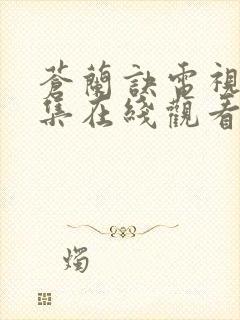 蒼蘭訣電視
集在綫觀看
燭